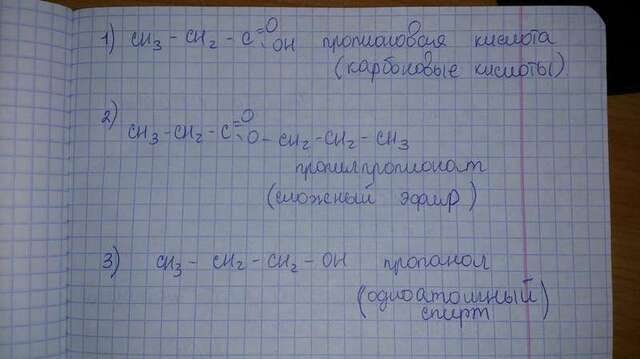 1) CH₃ – CH₂ – C =O – OH пропионовая кислота
(карбоновые кислоты)
2) CH₃ – CH₂ – C =O – O – CH₂ – CH₂ – CH₃
пропилпропионат
(сложный эфир)
3) CH₃ – CH₂ – CH₂ – OH пропанол
(одноатомный
спирт)